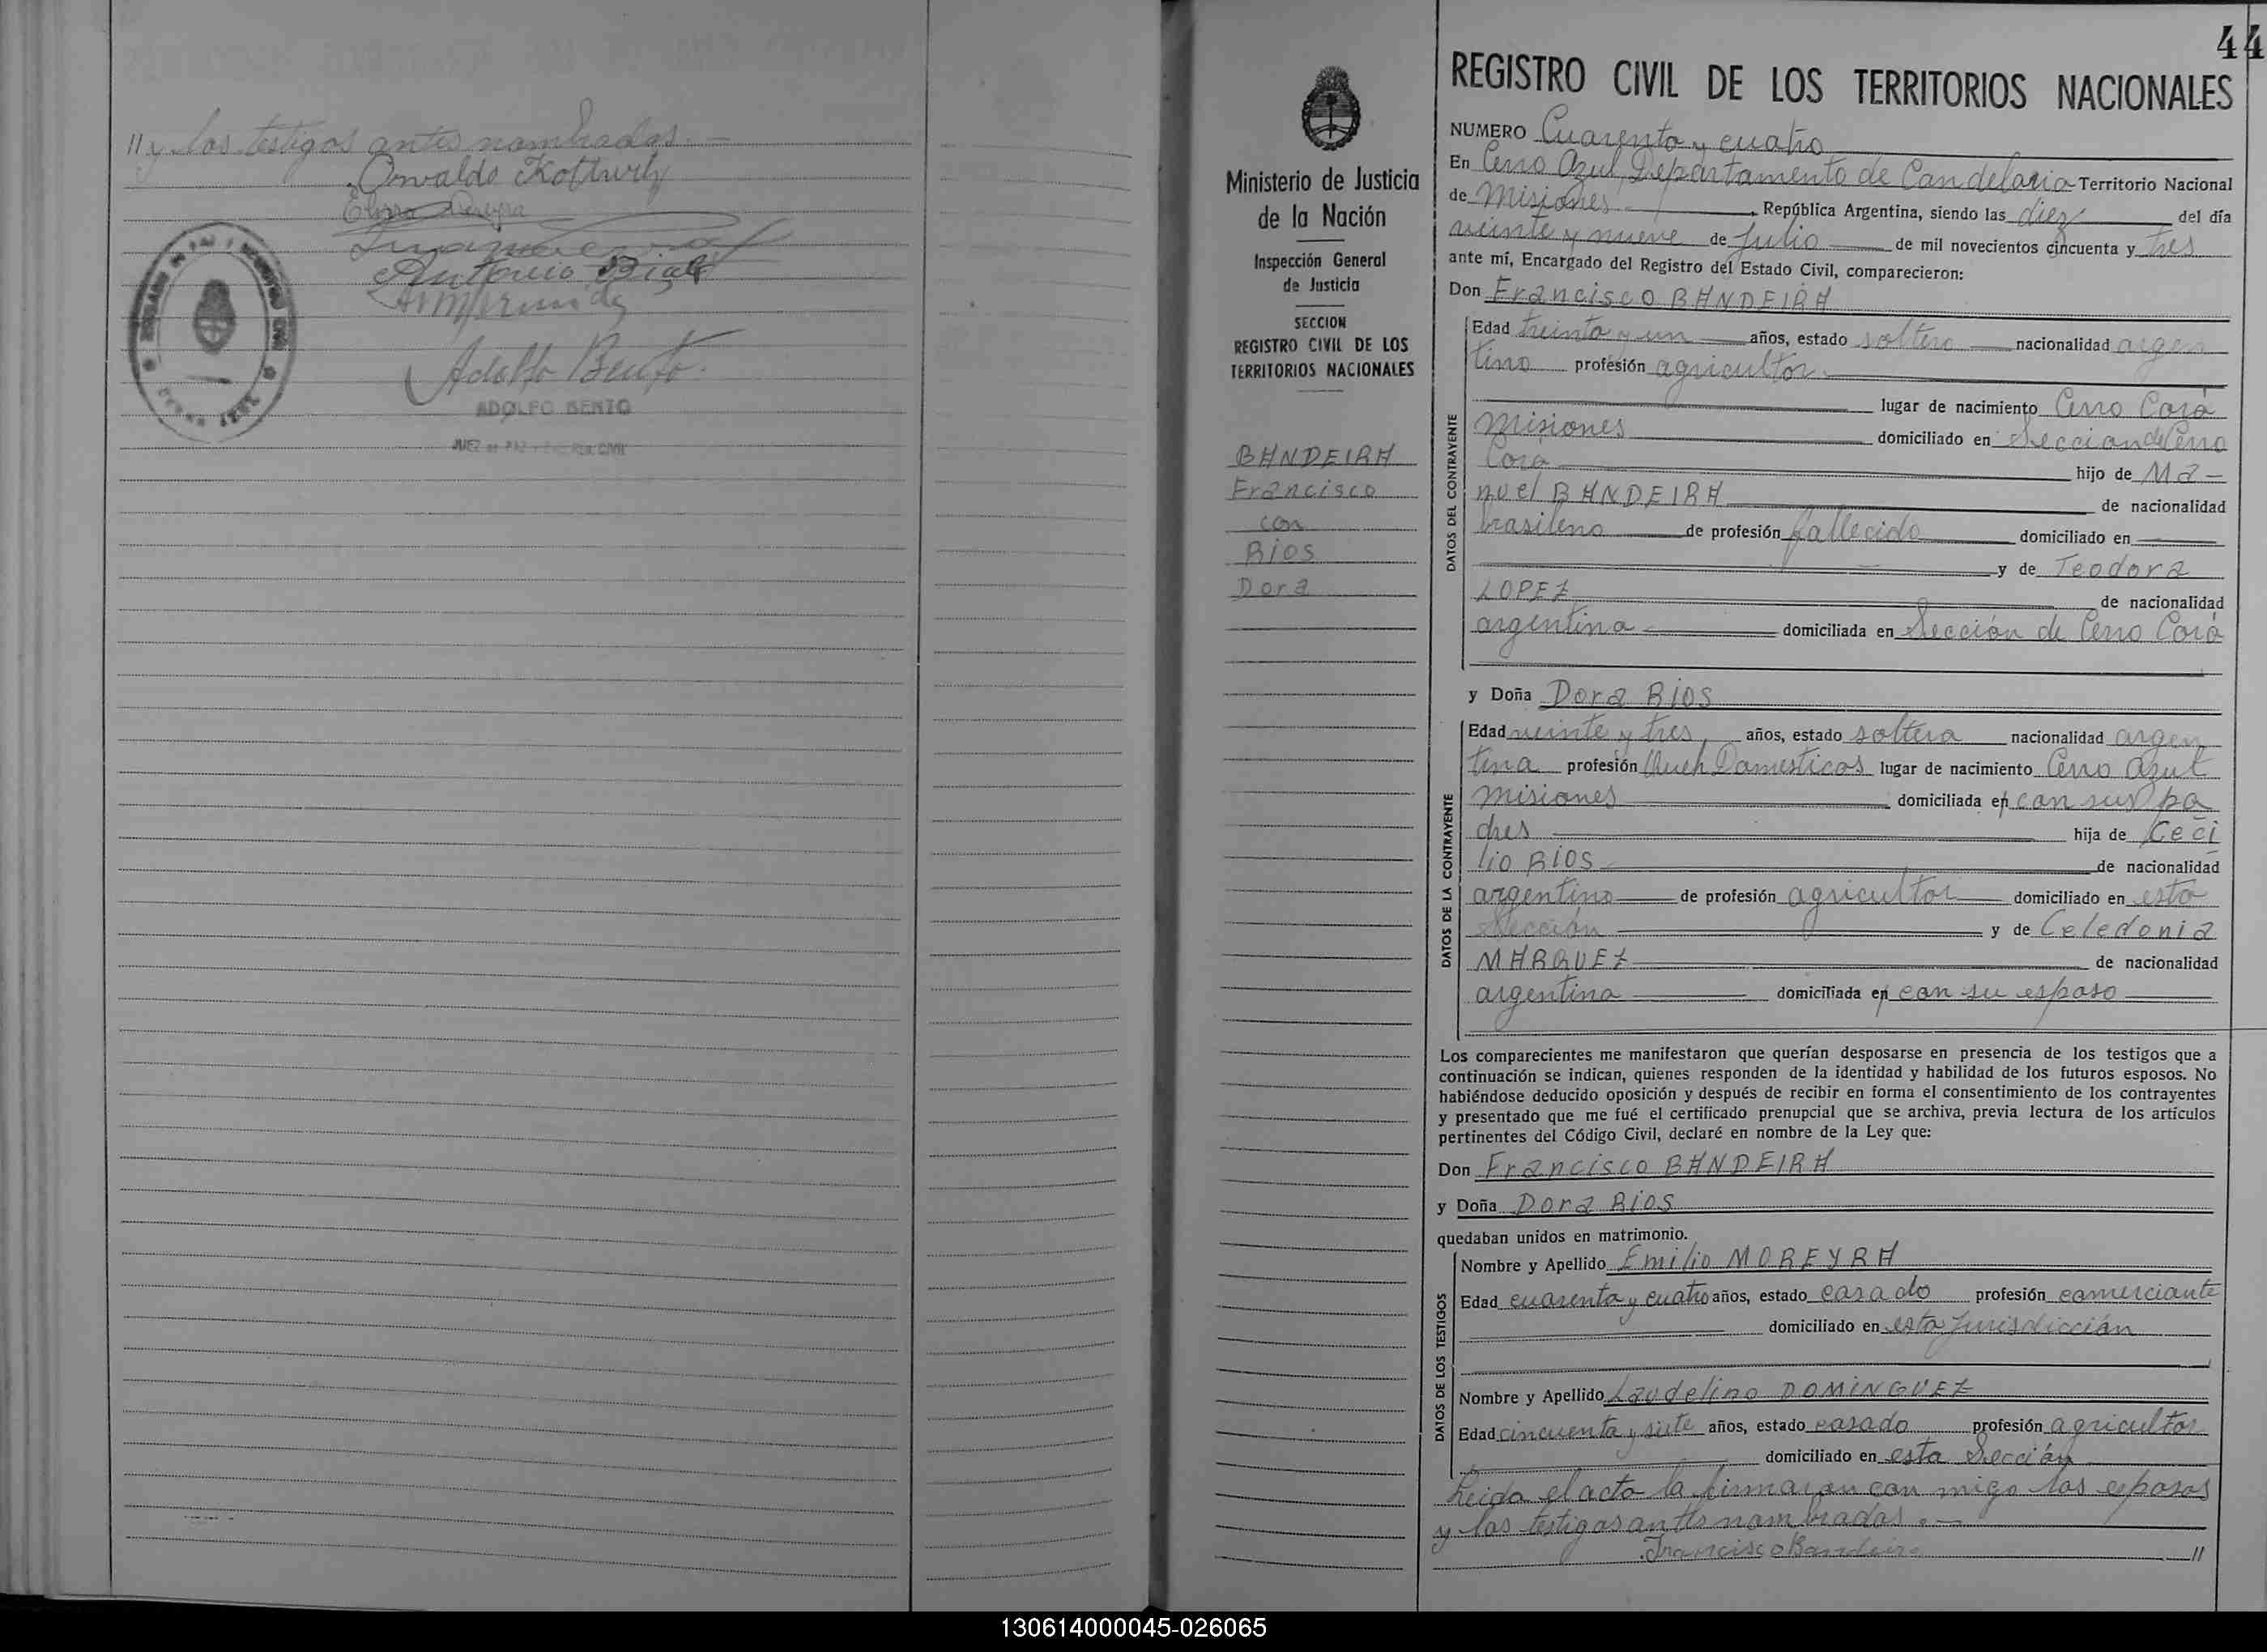 // y los testigos antes nombrados.—
Osvaldo
Elvira Pereyra
Antonio
Adolfo Bento.
ADOLFO BENTO
JUEZ DE PAZ
44
REGISTRO CIVIL DE LOS TERRITORIOS NACIONALES
Ministerio de Justicia
de la Nación
Inspección General
de Justicia
SECCION
REGISTRO CIVIL DE LOS
TERRITORIOS NACIONALES
BANDEIRA
Francisco
con
RIOS
Dora
NUMERO Cuarenta y cuatro
En Cerro Azul, Departamento de Candelaria Territorio Nacional
de Misiones, República Argentina, siendo las diez del día
veinte y nueve de Julio de mil novecientos cincuenta y tres
ante mí, Encargado del Registro del Estado Civil, comparecieron:
Don Francisco BANDEIRA
DATOS DEL CONTRAYENTE
Edad treinta y un años, estado soltero nacionalidad argen
tino profesión agricultor
lugar de nacimiento Cerro Corá
Misiones domiciliado en Sección de Cerro
Corá hijo de Ma-
nuel BANDEIRA de nacionalidad
brasileno de profesión fallecido domiciliado en
y de Teodora
LOPEZ de nacionalidad
argentina domiciliada en Sección de Cerro Corá
y Doña Dora RIOS
DATOS DE LA CONTRAYENTE
Edad veinte y tres años, estado soltera nacionalidad argen
tina profesión Queh Domesticos lugar de nacimiento Cerro Azul
Misiones domiciliada en con sus pa
dres hija de Ceci
lio RIOS de nacionalidad
argentino de profesión agricultor domiciliado en esta
Sección y de Celedonia
MARQUEZ de nacionalidad
argentina domiciliada en con su esposo
Los comparecientes me manifestaron que querían desposarse en presencia de los testigos que a
continuación se indican, quienes responden de la identidad y habilidad de los futuros esposos. No
habiéndose deducido oposición y después de recibir en forma el consentimiento de los contrayentes
y presentado que me fué el certificado prenupcial que se archiva, previa lectura de los artículos
pertinentes del Código Civil, declaré en nombre de la Ley que:
Don Francisco BANDEIRA
y Doña Dora RIOS
quedaban unidos en matrimonio.
DATOS DE LOS TESTIGOS
Nombre y Apellido Emilio MOREYRA
Edad cuarenta y cuatro años, estado casado profesión comerciante
domiciliado en esta Jurisdicción
Nombre y Apellido Laudelino DOMINGUEZ
Edad cincuenta y siete años, estado casado profesión agricultor
domiciliado en esta Sección
Leida el acta la firmaron con migo los esposos
y los testigos antes nombrados.—
Francisco Bandeira //
130614000045-026065